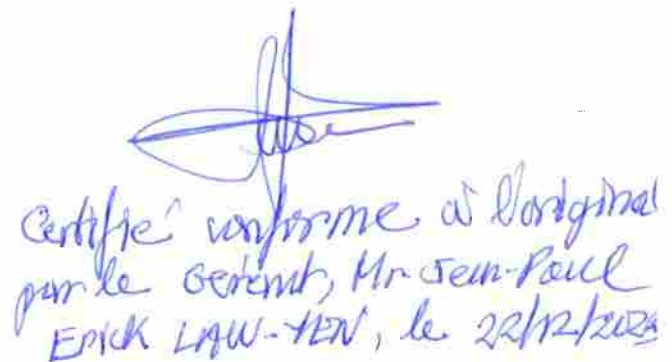 Certifié conforme à l'original
par le Gérant, Mr Jean-Paul
Erick LAW-YEN, le 22/12/202